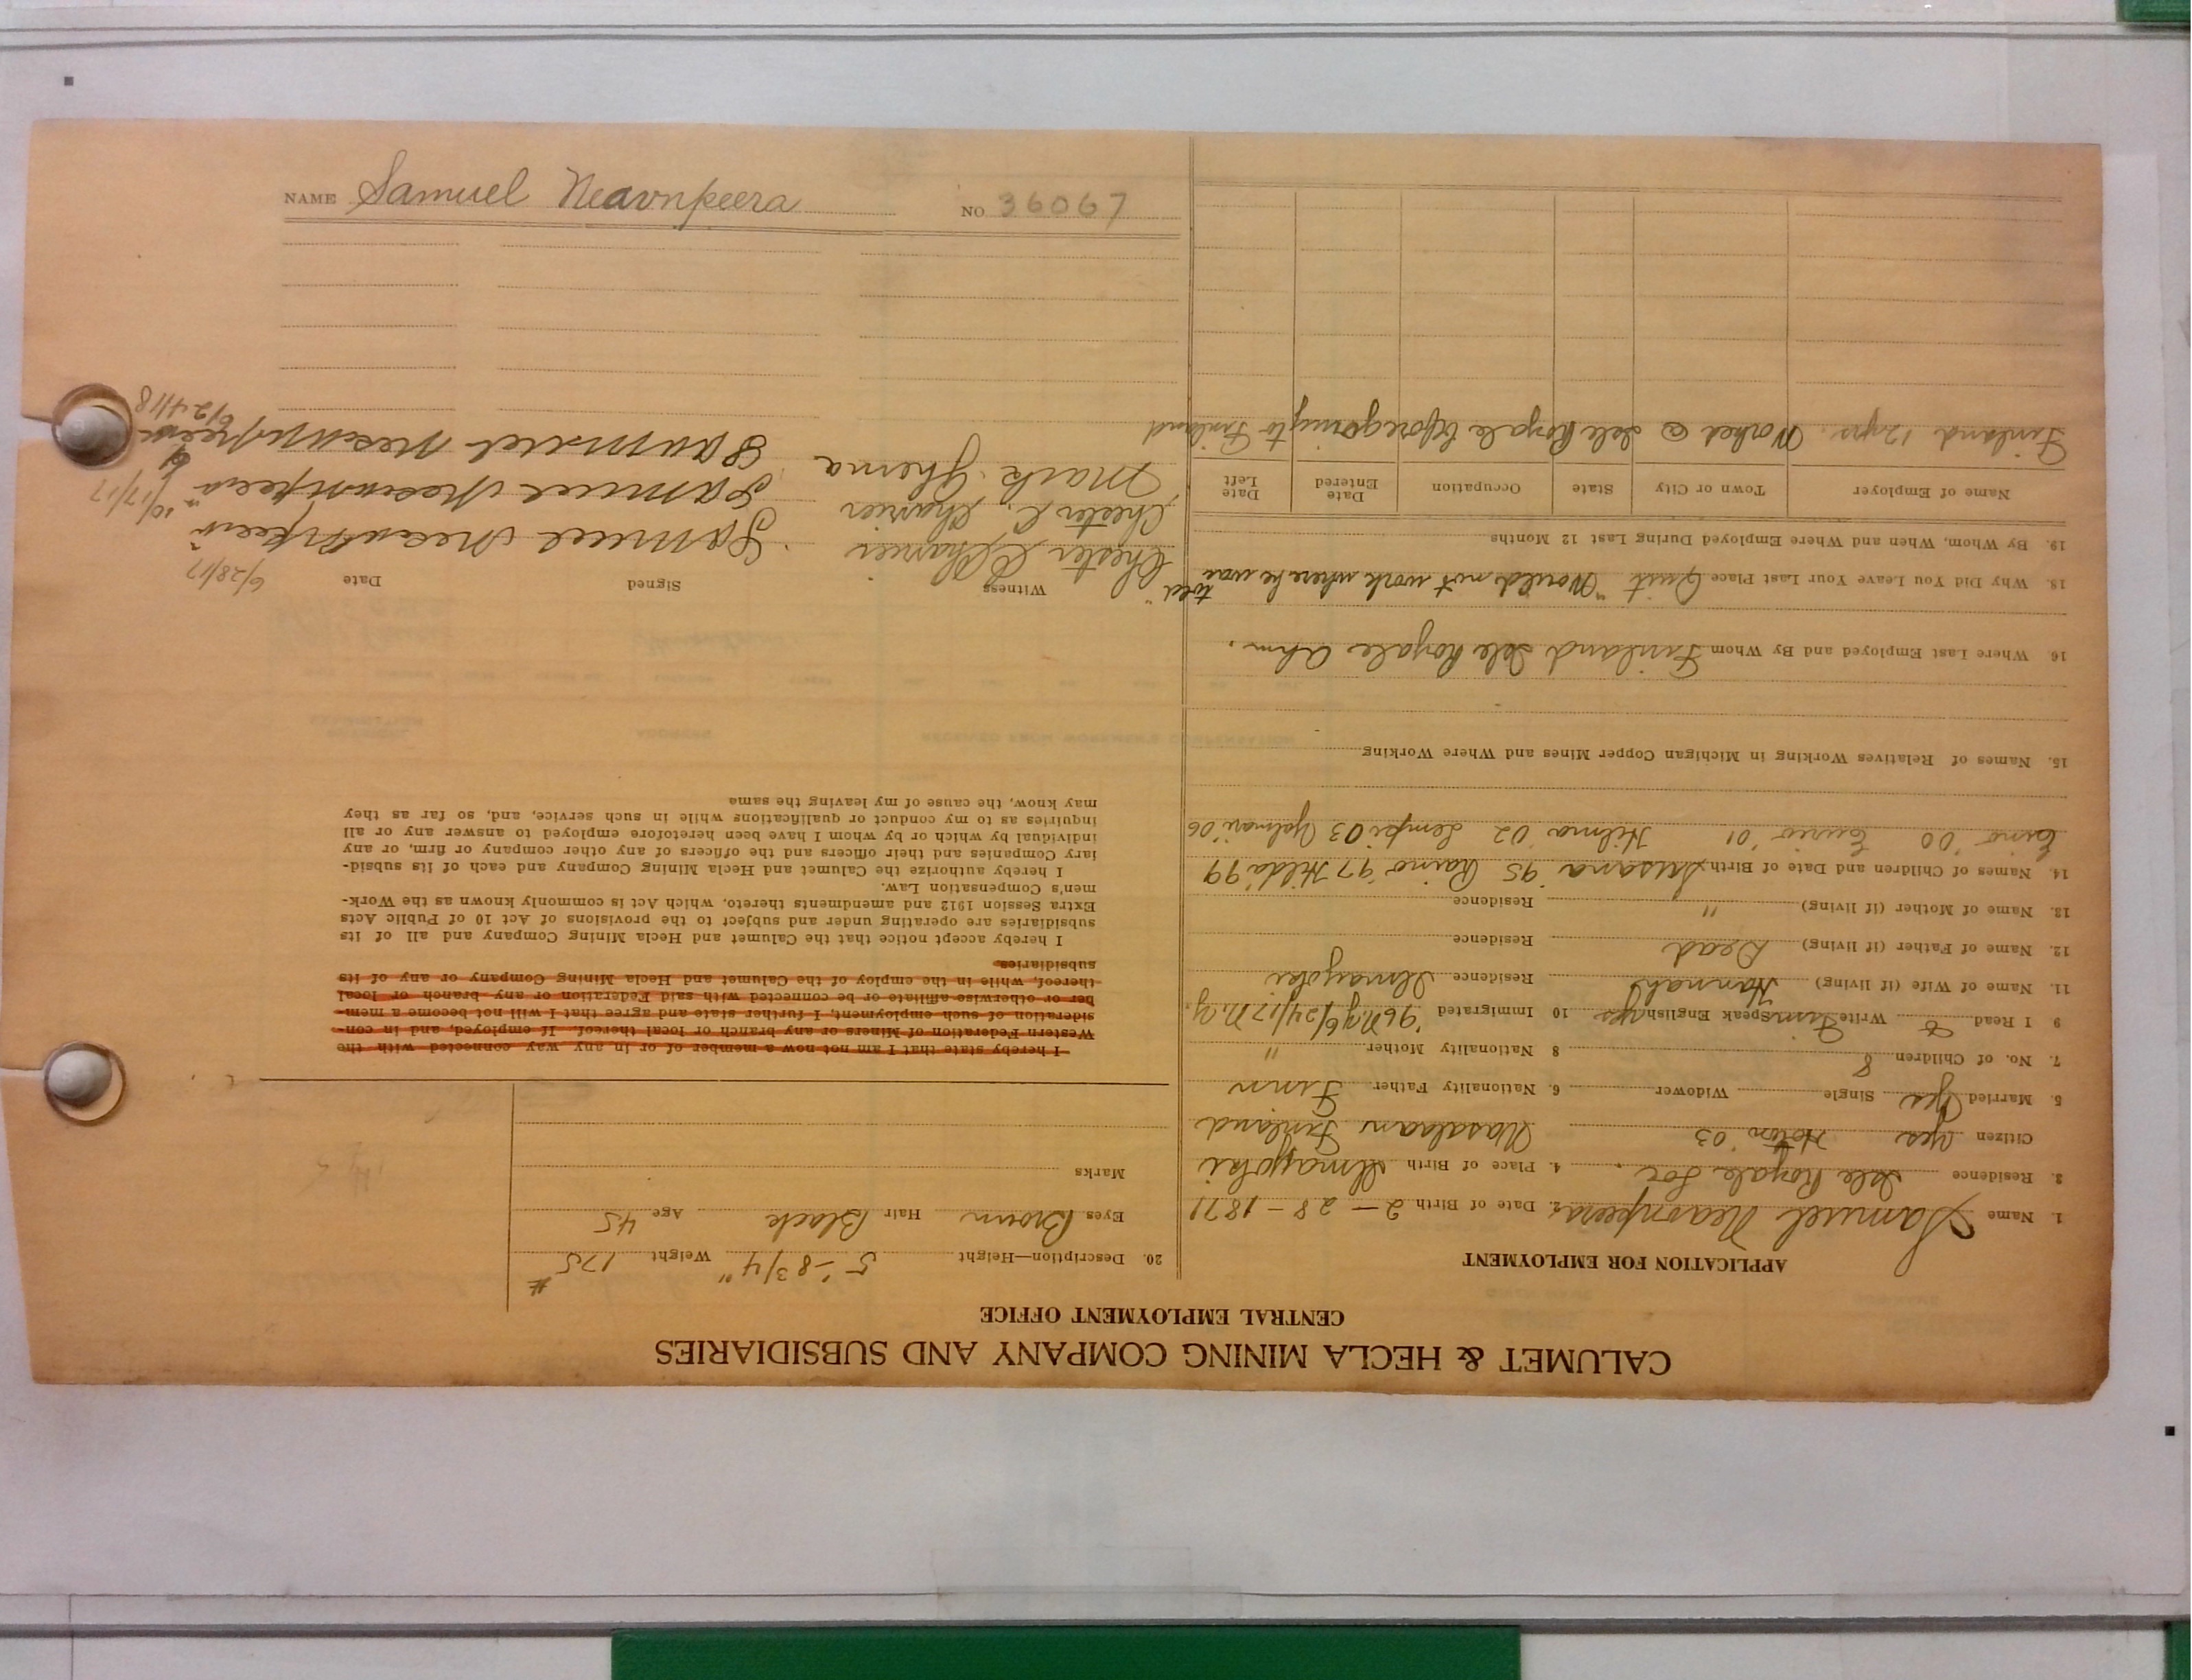 CALUMET & HECLA MINING COMPANY AND SUBSIDIARIES
CENTRAL EMPLOYMENT OFFICE
APPLICATION FOR EMPLOYMENT
1. Name Samuel Neavnpeera 2. Date of Birth 2-28-1871
3. Residence Isle Royale Loc. 4. Place of Birth Ilmayoki
Citizen Yes Hoton '03 Wasalaan Finland
5. Married Yes Single Widower 6. Nationality Father Finn
7. No. of Children 8 8 Nationality Mother "
9 I Read & Write Finn Speak English yes 10 Immigrated '96 N.Y. 6/24/17 N.Y.
11. Name of Wife (if living) Hannah Residence Ilmayoki
12. Name of Father (if living) Dead Residence
13. Name of Mother (if living) " Residence
14. Names of Children and Date of Birth Susana '95 Raino '97 Hilda '99
Eino '00 '01 Hilma '02 Lempi '03 Yalmari '06
15. Names of Relatives Working in Michigan Copper Mines and Where Working
16. Where Last Employed and By Whom Finland Isle Royale Ahm.
18. Why Did You Leave Your Last Place Quit "Would not work where he was told"
19. By Whom, When and Where Employed During Last 12 Months
Name of Employer Town or City State Occupation Date Entered Date Left
Finland 12 yrs. Worked @ Isle Royale before going to Finland
20. Description—Height 5'-8 3/4" Weight 175#
Eyes Brown Hair Black Age 45
Marks
I hereby state that I am not now a member of or in any way connected with the
Western Federation of Miners or any branch or local thereof. If employed, and in con-
sideration of such employment, I further state and agree that I will not become a mem-
ber or otherwise affiliate or be connected with said Federation or any branch or local
thereof, while in the employ of the Calumet and Hecla Mining Company or any of its
subsidiaries
I hereby accept notice that the Calumet and Hecla Mining Company and all of its
subsidiaries are operating under and subject to the provisions of Act 10 of Public Acts
Extra Session 1912 and amendments thereto, which Act is commonly known as the Work-
men's Compensation Law.
I hereby authorize the Calumet and Hecla Mining Company and each of its subsid-
iary Companies and their officers and the officers of any other company or firm, or any
individual by which or by whom I have been heretofore employed to answer any or all
inquiries as to my conduct or qualifications while in such service, and, so far as they
may know, the cause of my leaving the same
Witness Signed Date
Chester C. Charier Samuel Neavnpeera 6/28/17
Chester C. Charier Samuel Neavnpeera 10/17/17
Mark Samuel Neavnpeera 6/24/18
NAME Samuel Neavnpeera NO 36067